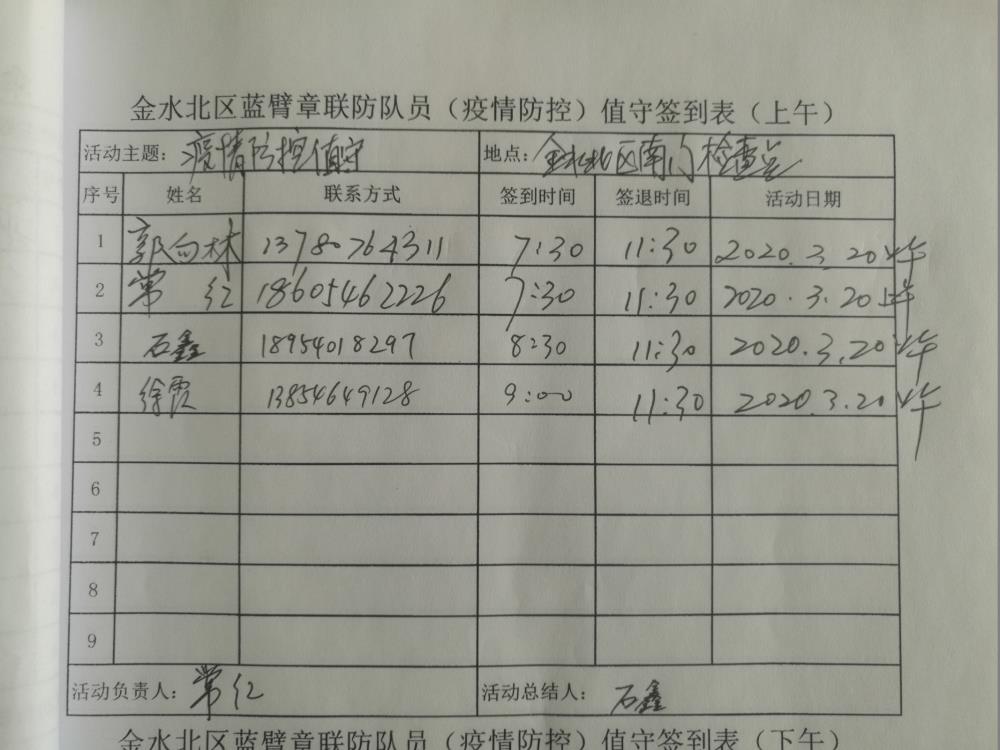 金水北区蓝臂章联防队员（疫情防控）值守签到表（上午）
活动主题：疫情防控值守 地点：金水北区南门检查点
序号 姓名 联系方式 签到时间 签退时间 活动日期
1 郭向林 13780764311 7:30 11:30 2020.3.20上午
2 常红 18605462226 7:30 11:30 2020.3.20上午
3 石鑫 18954018297 8:30 11:30 2020.3.20上午
4 徐霞 13854649128 9:00 11:30 2020.3.20上午
5
6
7
8
9
活动负责人：常红 活动总结人：石鑫
金水北区蓝臂章联防队员（疫情防控）值守签到表（下午）